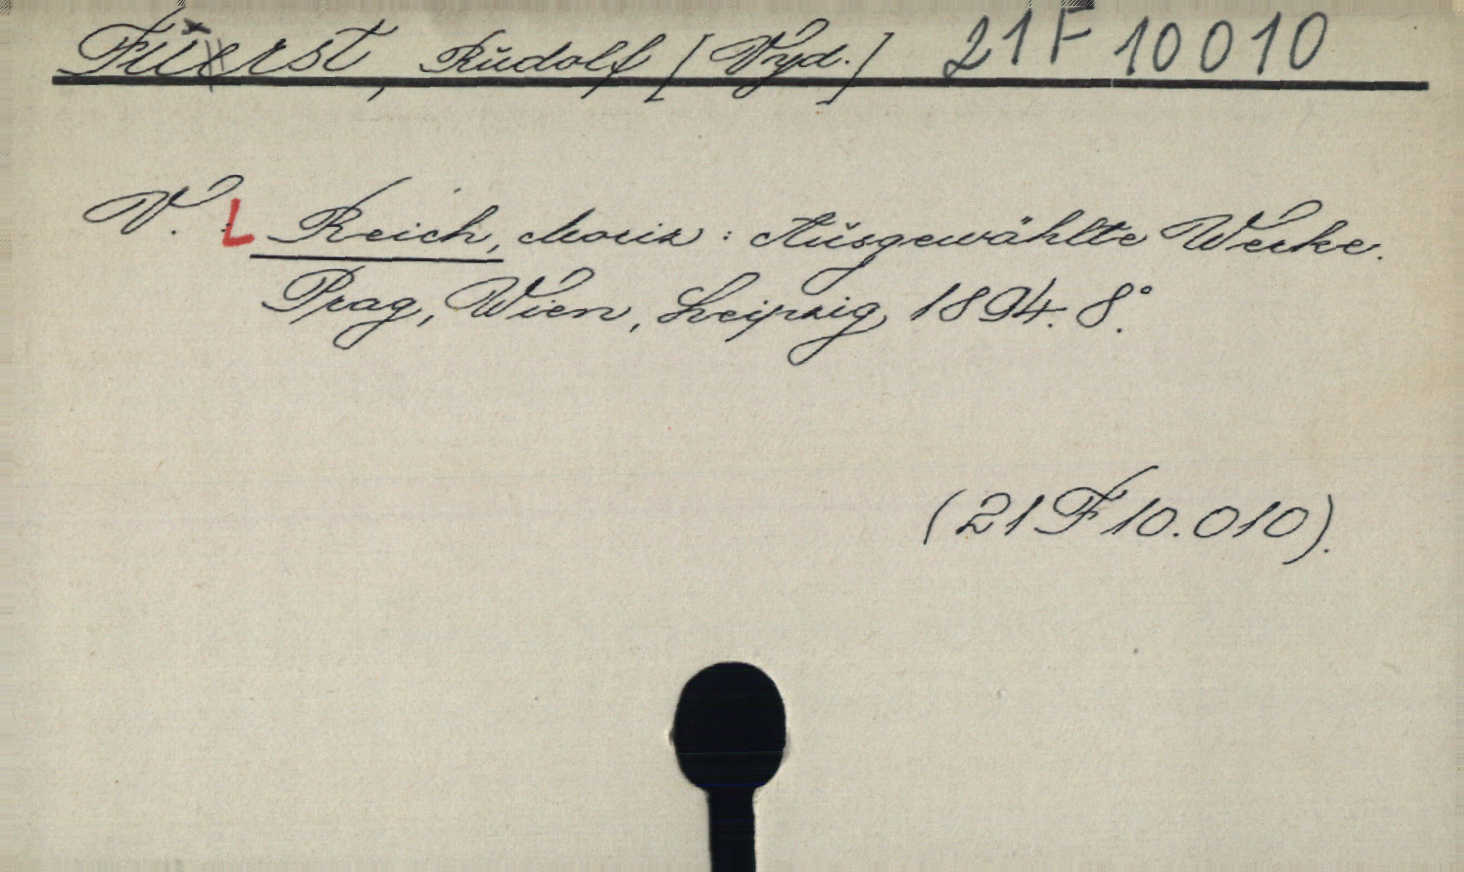 Fürst, Rudolf [Vyd.] 21 F 10010
V. L Reich, Moriz: Ausgewählte Werke.
Prag, Wien, Leipzig 1894. 8°.
(21 F 10.010).